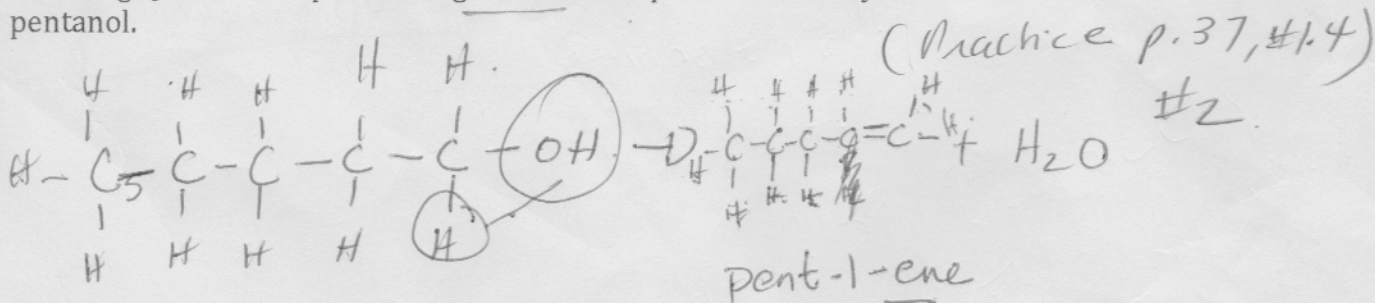 pentanol.
(Practice p.37, #1.4)
#2.
H H H H H.
H H H H H
H - C - C - C - C - C - OH → H - C - C - C - C = C - H + H2O
5
H H H H H
H H H
pent-1-ene